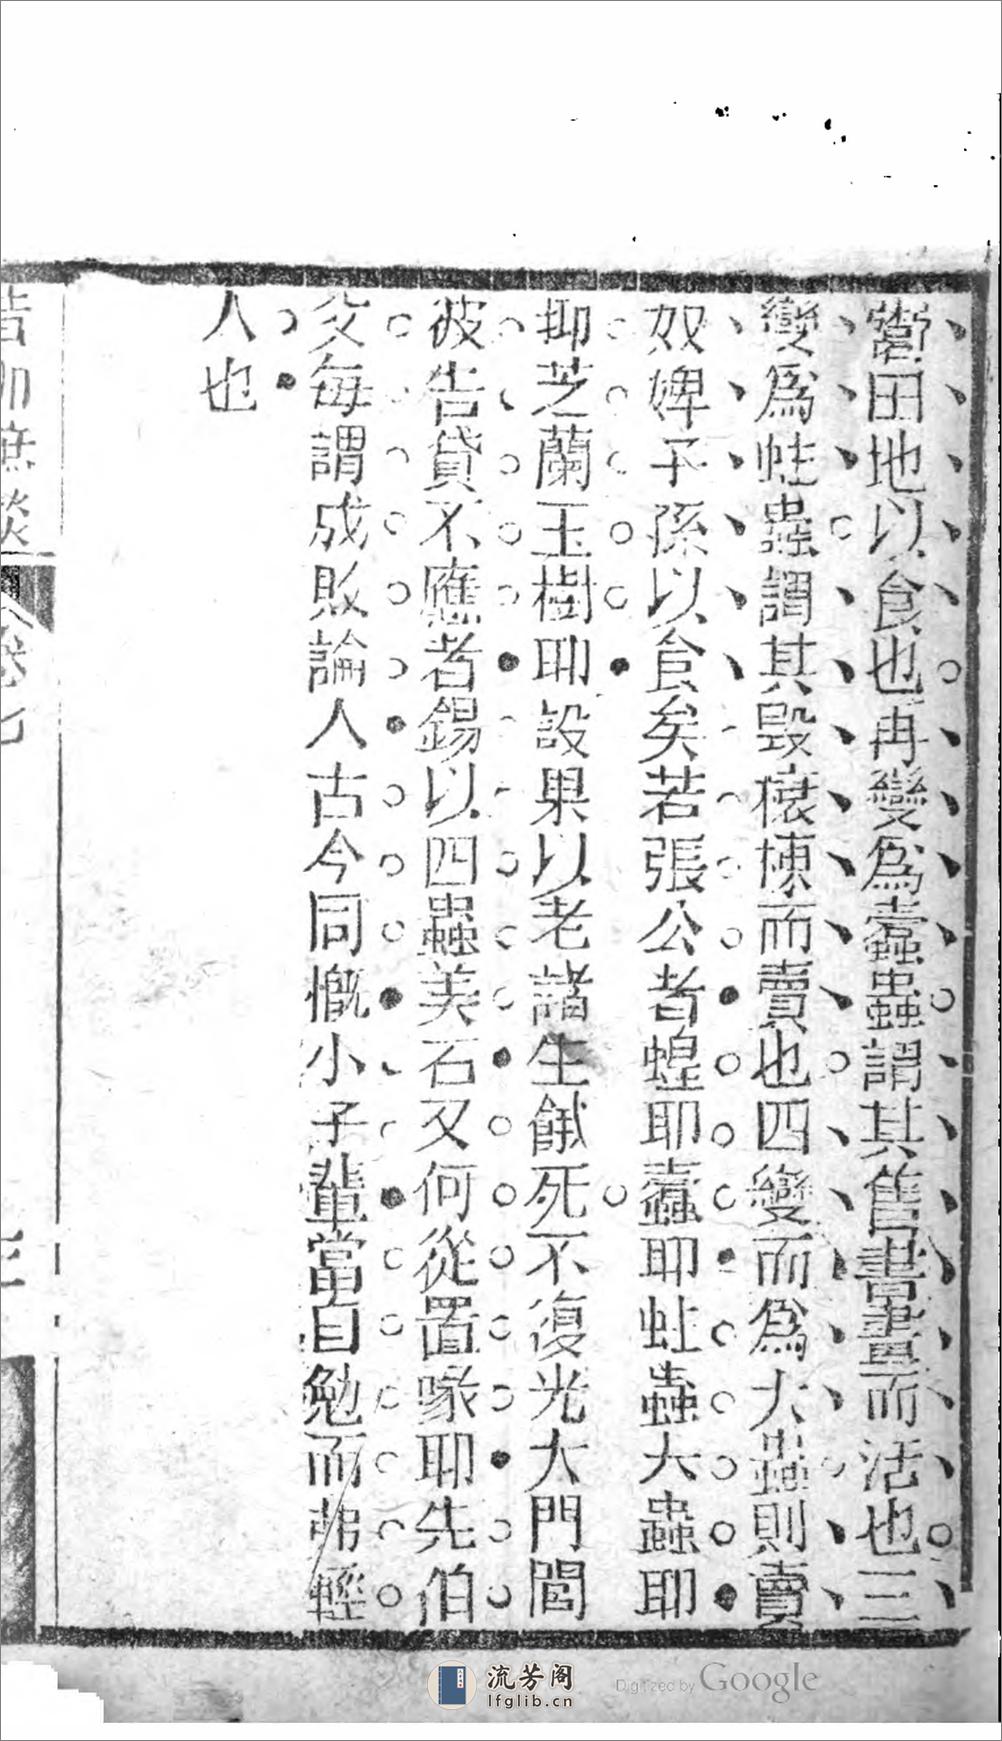 鬻田地以食也再變爲蠹蟲謂其售書畫而活也三
變爲蛀蟲謂其毀榱棟而賣也四變而爲大蟲則賣
奴婢子孫以食矣若張公者蝗耶蠹耶蛀蟲大蟲耶
抑芝蘭玉樹耶設果以老諸生餓死不復光大門閭
彼告貸不應者錫以四蟲美名又何從置喙耶先伯
父每謂成敗論人古今同慨小子輩當自勉而弗輕
人也
卷七
流芳阁
lfglib.cn
Digitized by Google